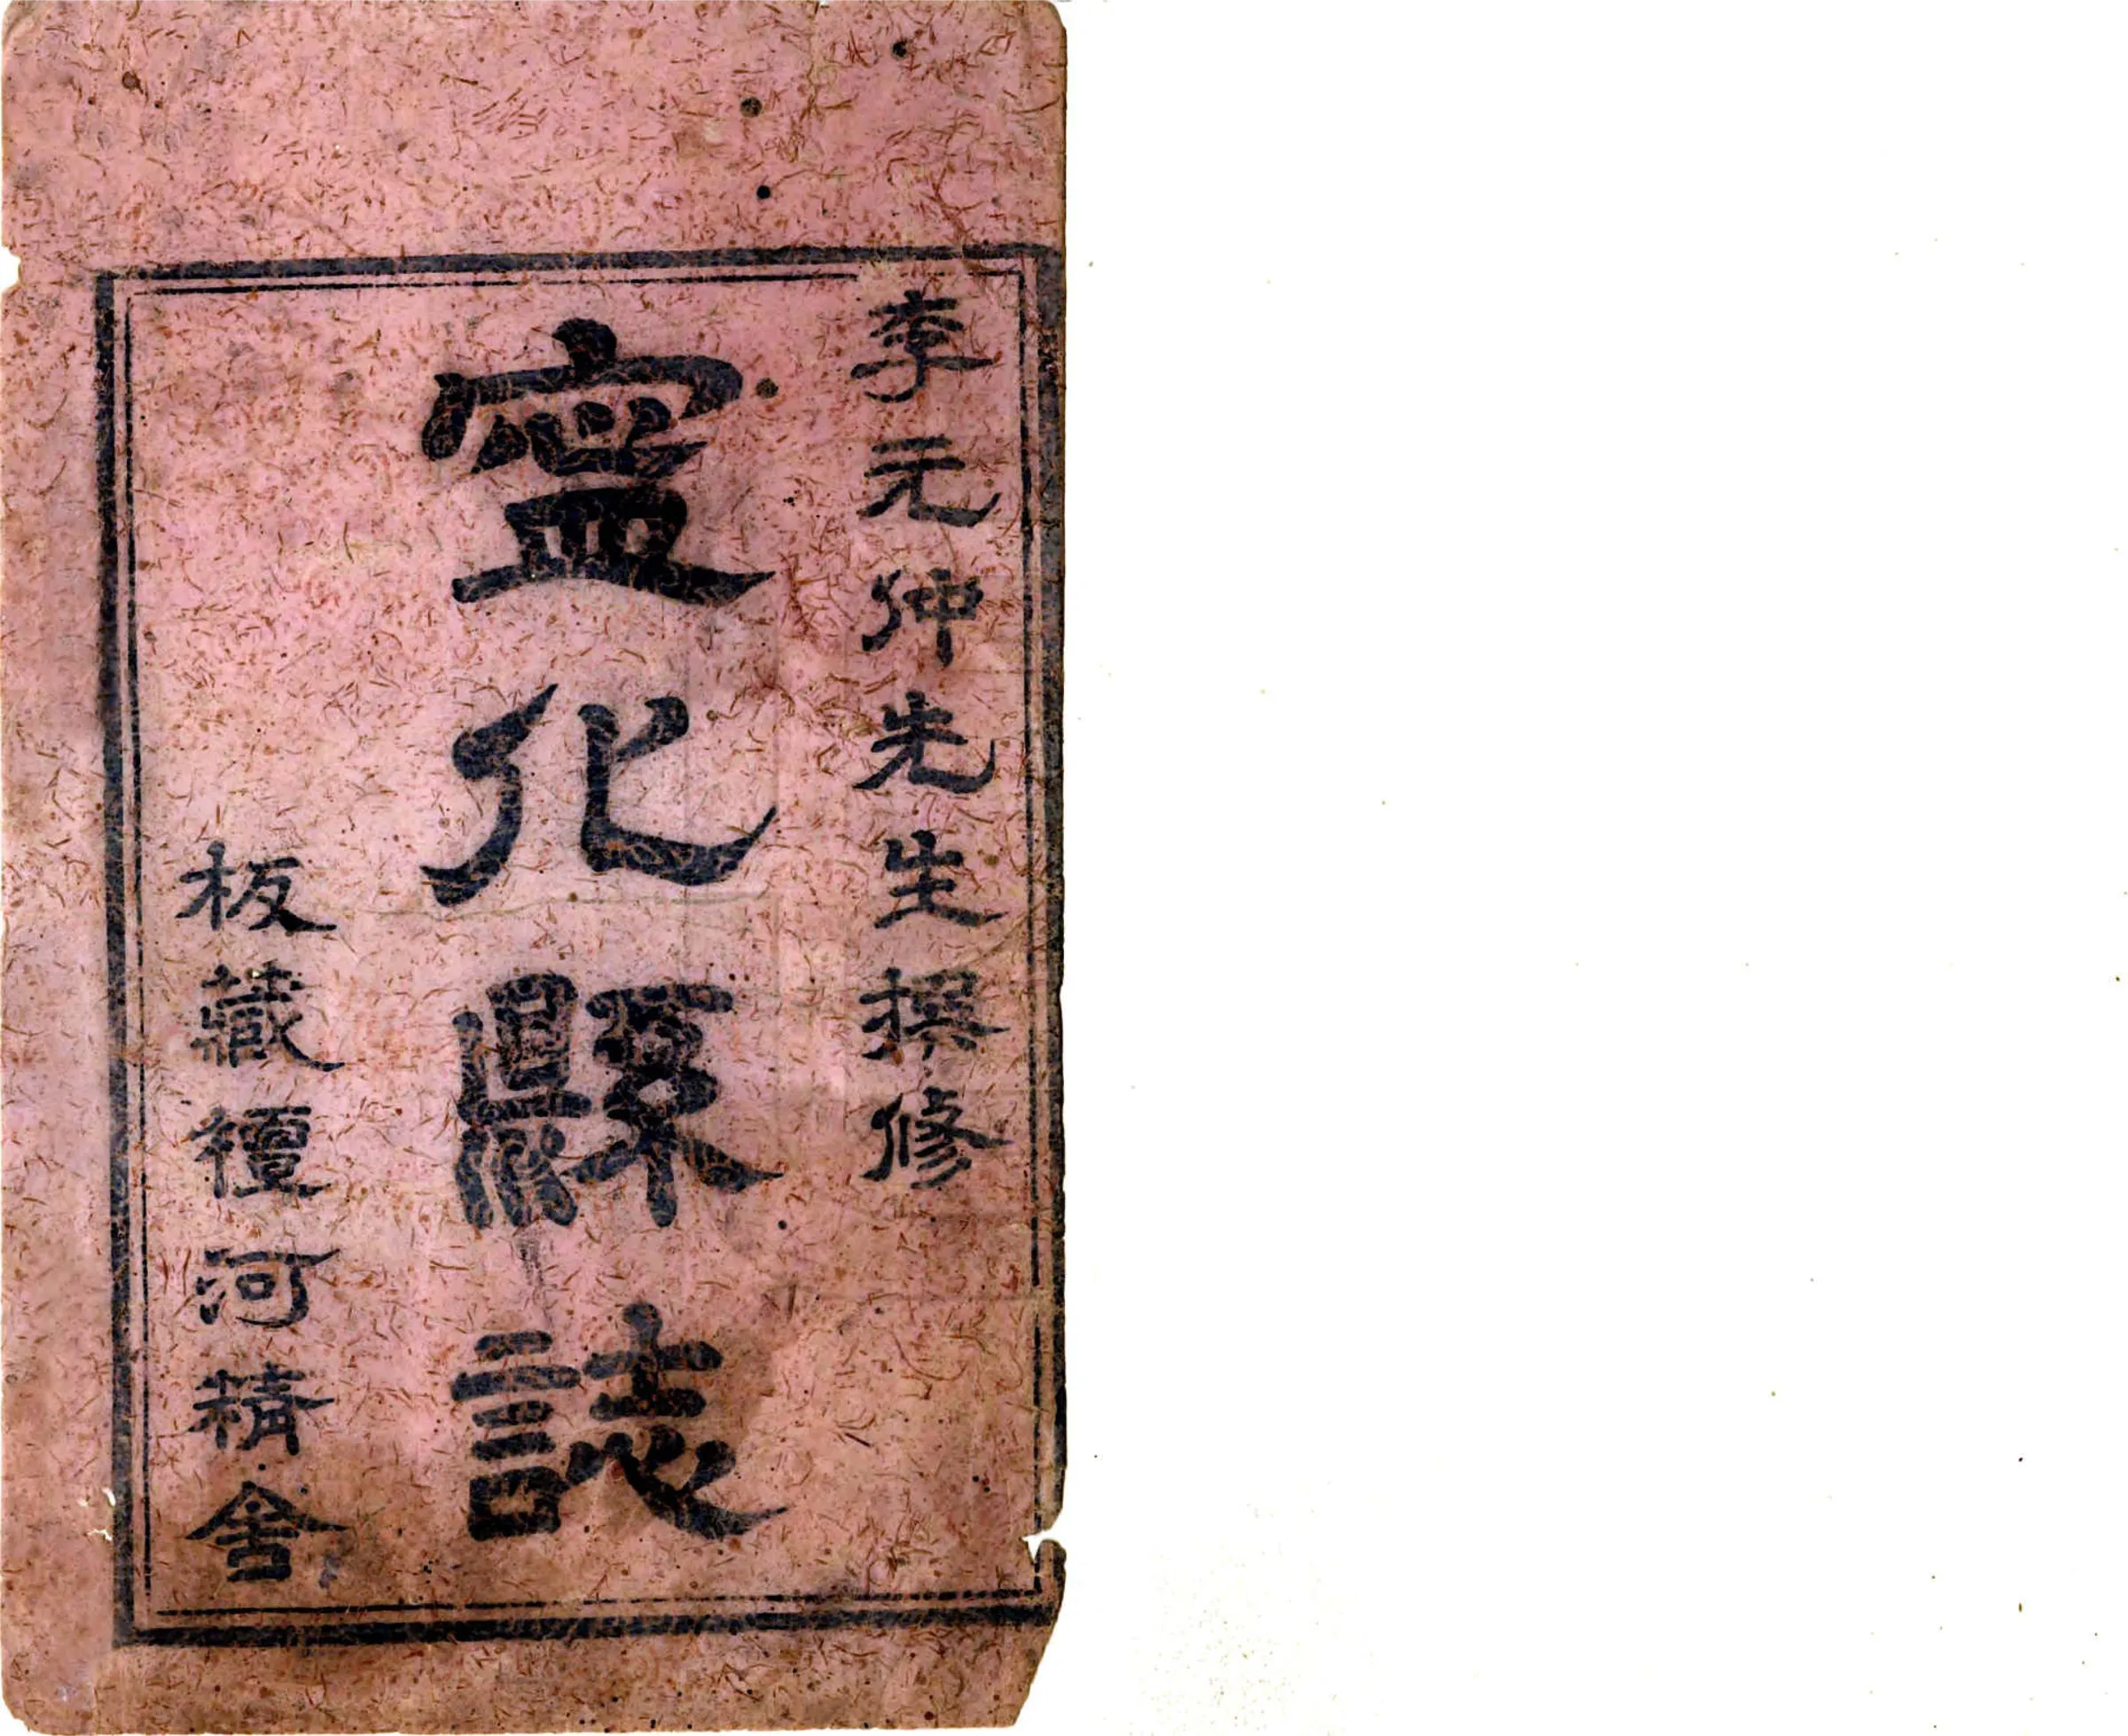 李元仲先生撰修
寍化縣誌
板藏檀河精舍